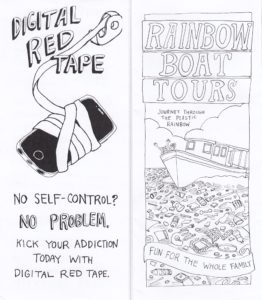 DIGITAL
RED
TAPE
NO SELF-CONTROL?
NO PROBLEM.
KICK YOUR ADDICTION
TODAY WITH
DIGITAL RED TAPE.
RAINBOW
BOAT
TOURS
JOURNEY THROUGH
THE PLASTIC
RAINBOW
FUN FOR THE WHOLE FAMILY